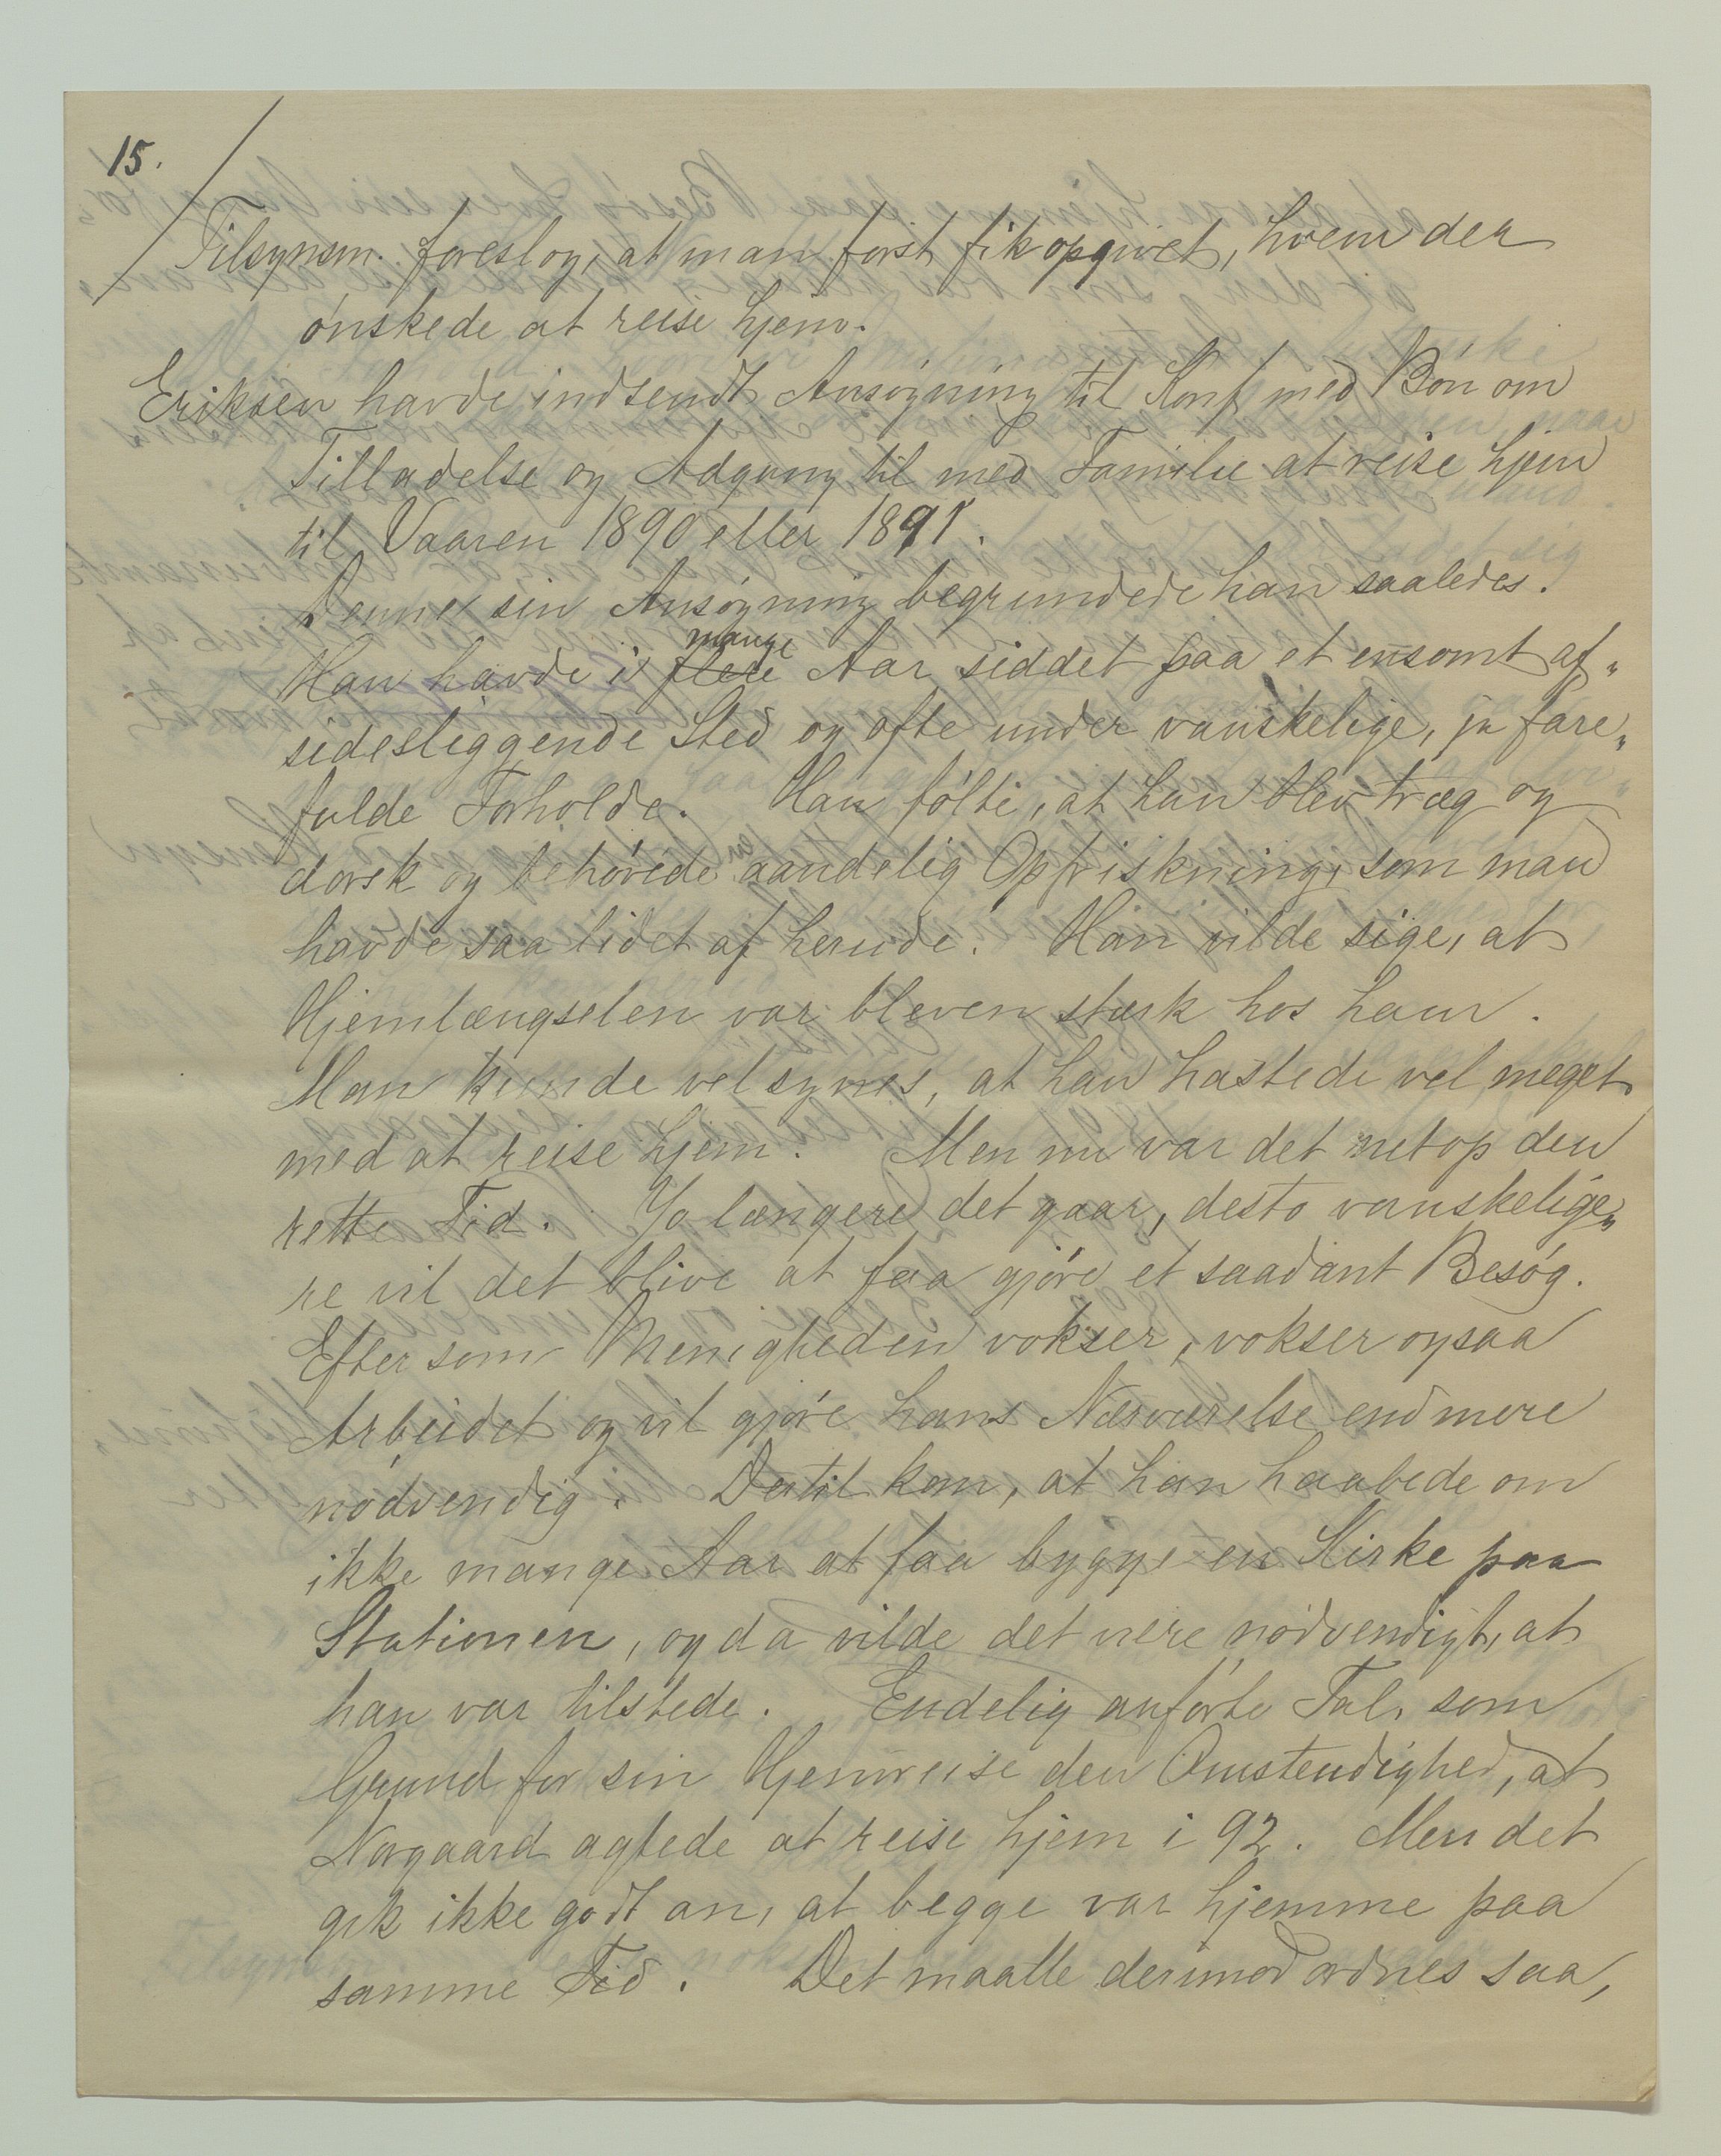 15.
Tilsynsm. foreslog, at man först fik opgivet, hvem der
önskede at reise hjem.
Eriksen havde indsendt Ansögning til Konf med Bön om
Tilladelse og Adgang til med Familie at reise hjem
til Vaaren 1890 eller 1891.
Denne sin Ansögning begrundede han saaledes.
mange
Han havde i flere Aar siddet paa et ensomt af„
sidesliggende Sted og ofte under vanskelige, ja fare„
fulde Forholde. Han fölte, at han blev træg og
dorsk og behövede aandelig Opfriskning, som man
havde saa lidet af herude. Han vilde sige, at
Hjemlængselen var bleven stærk hos ham.
Man kunde vel synes, at han hastede vel meget
med at reise hjem. Men nu var det netop den
rette Tid. Jo længere det gaar, desto vanskelige„
re vil det blive at faa gjöre et saadant Besög.
Efter som Menigheden vokser, vokser ogsaa
Arbeidet og vil gjöre hans Nærværelse end mere
nödvendig. Dertil kom, at han haabede om
ikke mange Aar at faa bygge en Kirke paa
Stationen, og da vilde det være nödvendigt, at
han var tilstede. Endelig anförte Tal. som
Grund for sin Hjemreise den Omstendighed, at
Norgaard agtede at reise hjem i 92. Men det
gik ikke godt an, at begge var hjemme paa
samme Tid. Det maatte derimod ordnes saa,